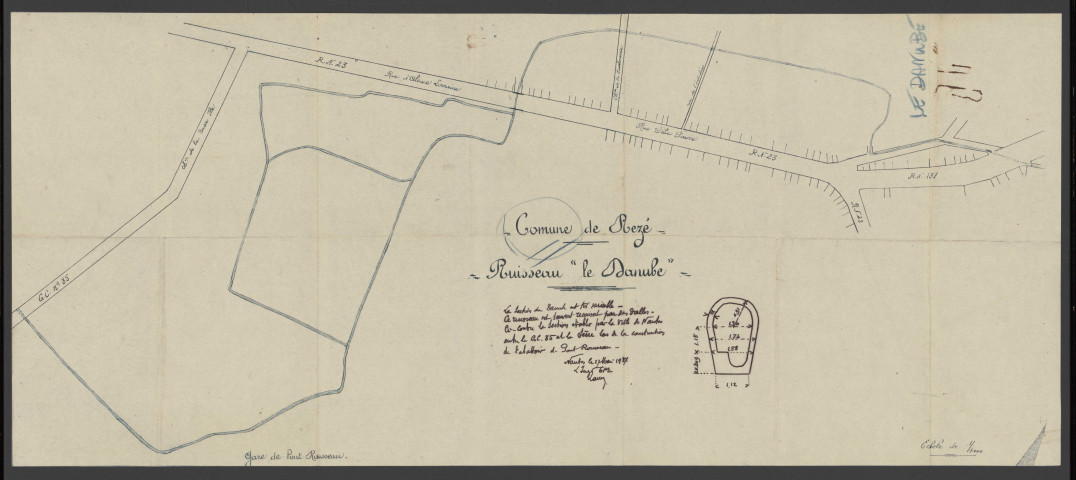 R.N. 23
Rue d'Alsace Lorraine
LE DANUBE
Rue Félix Faure
R.N. 23
R.N. 131
R.N. 23
G.C. Nº 85
- Comune de Rezé -
- Ruisseau "le Danube" -
La Section du Danube est très variable -
Ce ruisseau est souvent recouvert par des dalles -
Ci-contre la Section établie par la Ville de Nantes
entre le G.C. 85 et la Sèvre lors de la construction
de l'abattoir de Pont Rousseau -
Nantes le 17 Mai 1937
L'Ingr
1,12
Gare de Pont Rousseau.
Echelle de